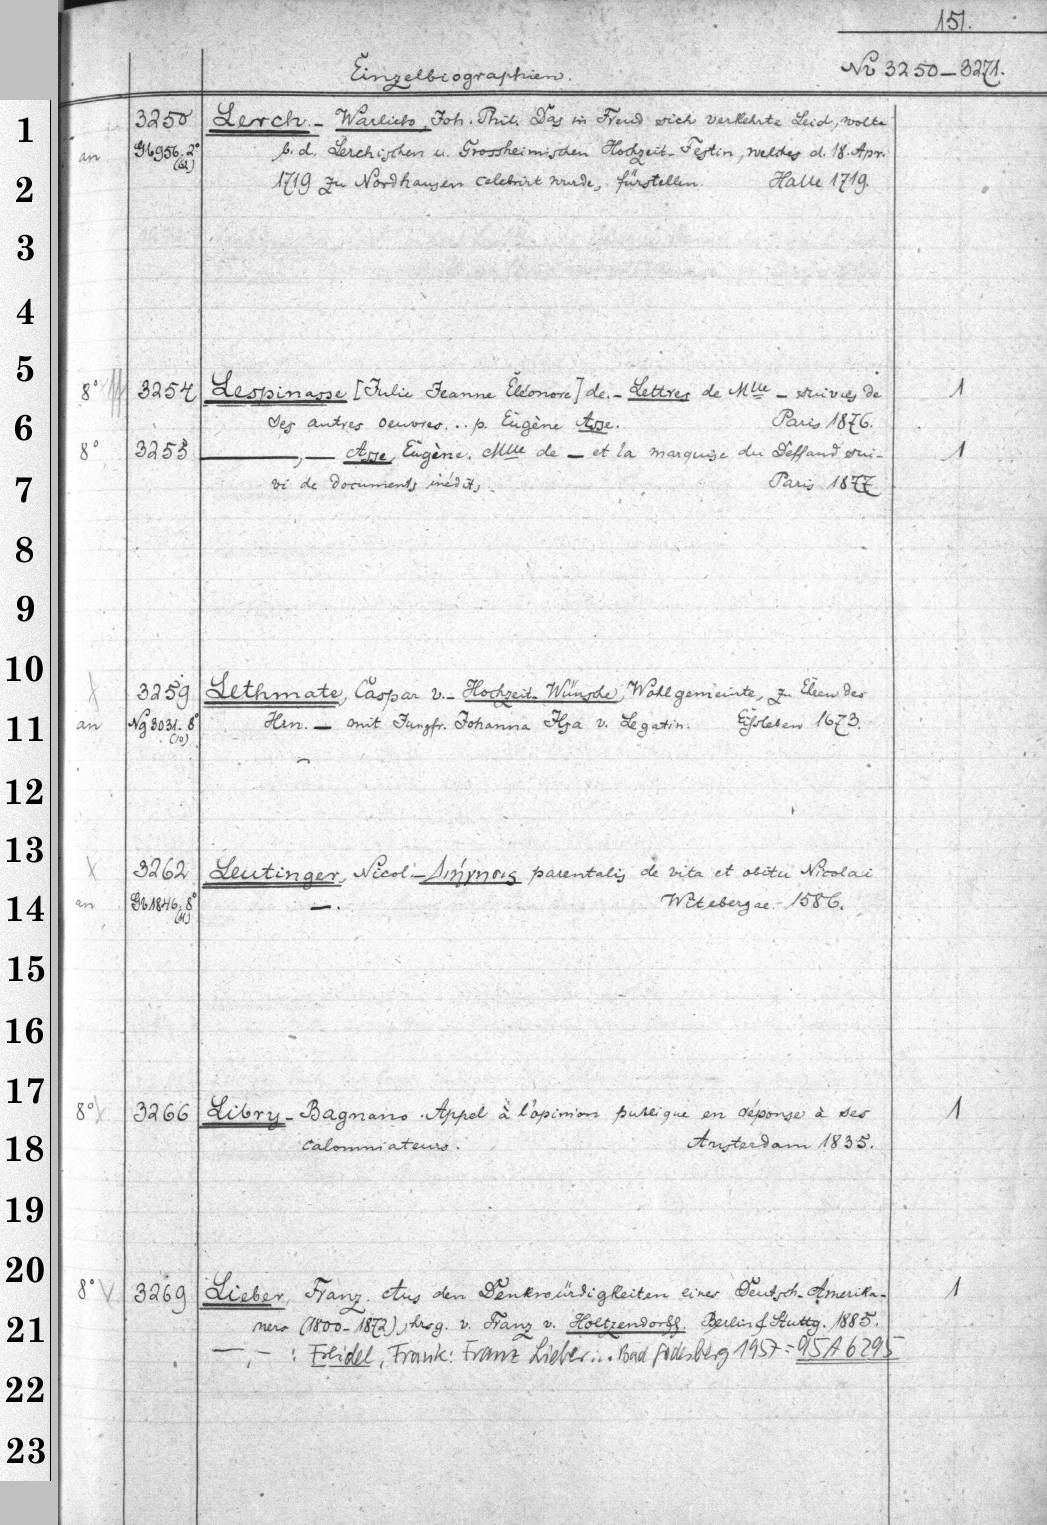 151.
Einzelbiographien.
No 3250-3271.
1
3250 Lerch - Warlich, Joh. Phil. Das in Freud sich verkehrte Leid, wolte
an 956. 2° b. d. Lerchischen u. Grossheimischen Hochzeit-Festin, welches d. 18. Apr.
2
1719 zu Nordhausen celebrirt wurde, fürstellen. Halle 1719.
3
4
5
8° 3254 Lespinasse [Julie Jeanne Eléonore] de.- Lettres de Mlle - suivies de 1
6
ses autres oeuvres... p. Eugène Asse. Paris 1876.
8° 3255 ———, — Asse, Eugène. Mlle de - et la marquise du Deffand sui- 1
7
vi de documents inédits. Paris 1877
8
9
10
3259 Lethmate, Caspar v.- Hochzeit-Wünsche, Wohlgemeinte, zu Ehren des
11
an Ng 3031. 8° (10) Hrn. — mit Jungfr. Johanna Ilsa v. Legatin. Eißleben 1673.
12
13
3262 Leutinger, Nicol.- Διήγησις parentalis de vita et obitu Nicolai
14
an 1846, 8° (11) —. Witebergae 1586.
15
16
17
8° 3266 Libry-Bagnano. Appel à l'opinion publique en réponse à ses 1
18
calomniateurs. Amsterdam 1835.
19
20
8° 3269 Lieber, Franz. Aus den Denkwürdigkeiten eines Deutsch-Amerika- 1
21
ners (1800-1872), hrsg. v. Franz v. Holtzendorff. Berlin & Stuttg. 1885.
22
—, - : Freidel, Frank: Franz Lieber... Bad Godesberg 1957 = 95 A 6295
23